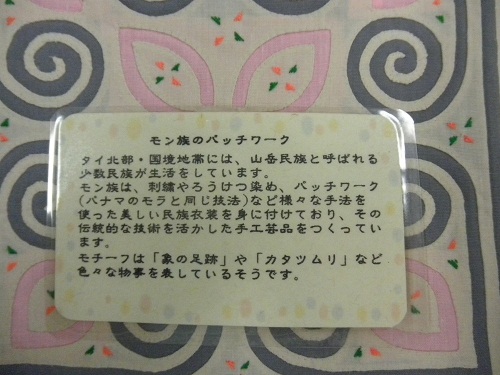 モン族のパッチワーク
タイ北部・国境地帯には、山岳民族と呼ばれる
少数民族が生活をしています。
モン族は、刺繍やろうけつ染め、パッチワーク
(パナマのモラと同じ技法)など様々な手法を
使った美しい民族衣装を身に付けており、その
伝統的な技術を活かした手工芸品をつくってい
ます。
モチーフは「象の足跡」や「カタツムリ」など
色々な物事を表しているそうです。